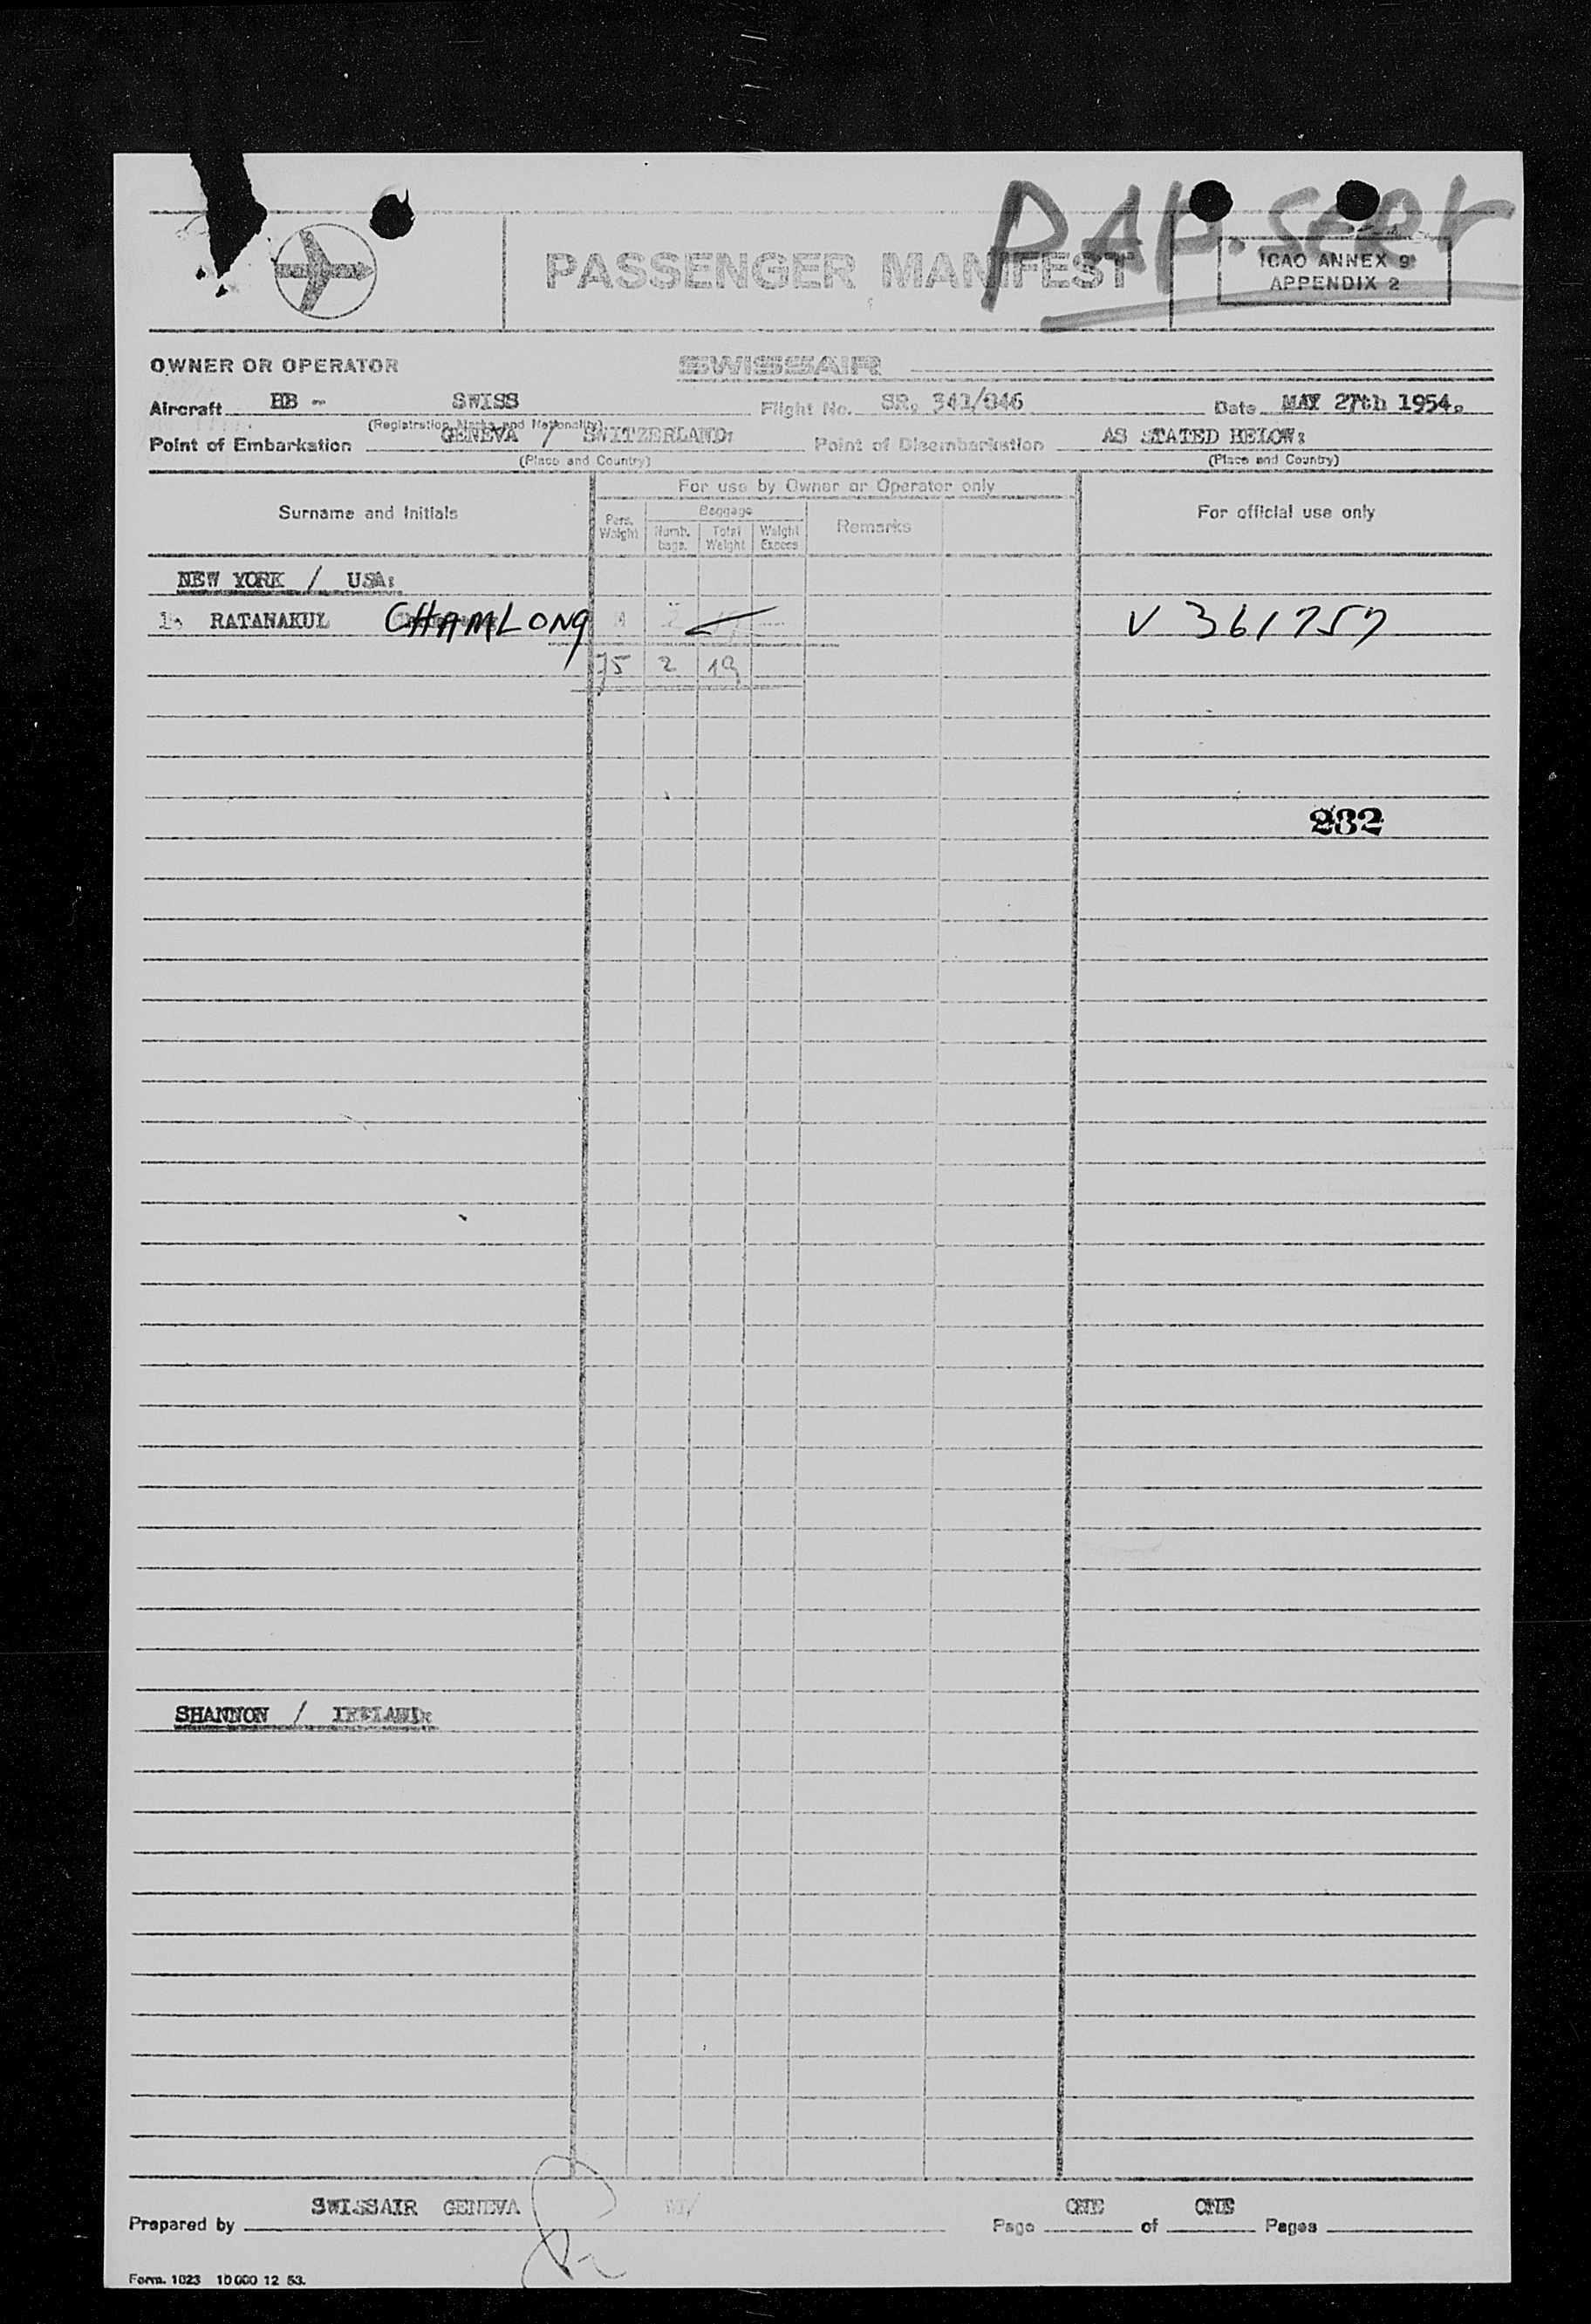 PAX. SERV
PASSENGER MANIFEST
ICAO ANNEX 9
APPENDIX 2
OWNER OR OPERATOR SWISSAIR
Aircraft HB - SWISS Flight No. SR. 341/846 Date MAY 27th 1954.
(Registration Marks and Nationality)
Point of Embarkation GENEVA / SWITZERLAND: Point of Disembarkation AS STATED BELOW:
(Place and Country) (Place and Country)
For use by Owner or Operator only
Surname and Initials Pers. Weight Baggage Remarks For official use only
Numb. bags. Total Weight Weight Excess
NEW YORK / USA:
1. RATANAKUL CHAMLONG M V 361757
75 2 19
232
SHANNON / IRELAND:
Prepared by SWISSAIR GENEVA Page ONE of ONE Pages
Form. 1023 10 000 12 53.